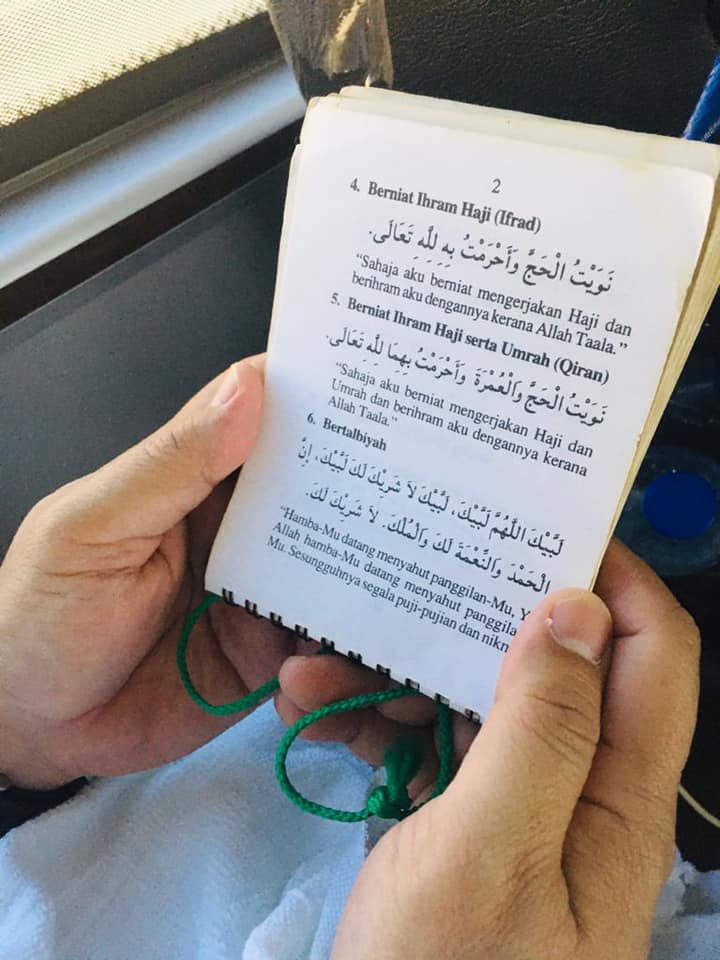 2
4. Berniat Ihram Haji (Ifrad)
نَوَيْتُ الْحَجَّ وَأَحْرَمْتُ بِهِ لِلَّهِ تَعَالَى.
“Sahaja aku berniat mengerjakan Haji dan
berihram aku dengannya kerana Allah Taala.”
5. Berniat Ihram Haji serta Umrah (Qiran)
نَوَيْتُ الْحَجَّ وَالْعُمْرَةَ وَأَحْرَمْتُ بِهِمَا لِلَّهِ تَعَالَى.
“Sahaja aku berniat mengerjakan Haji dan
Umrah dan berihram aku dengannya kerana
Allah Taala.”
6. Bertalbiyah
لَبَّيْكَ اللَّهُمَّ لَبَّيْكَ، لَبَّيْكَ لَا شَرِيْكَ لَكَ لَبَّيْكَ، إِنَّ
الْحَمْدَ وَالنِّعْمَةَ لَكَ وَالْمُلْكَ. لَا شَرِيْكَ لَكَ.
“Hamba-Mu datang menyahut panggilan-Mu,
Allah hamba-Mu datang menyahut
Mu. Sesungguhnya segala puji-pujian dan